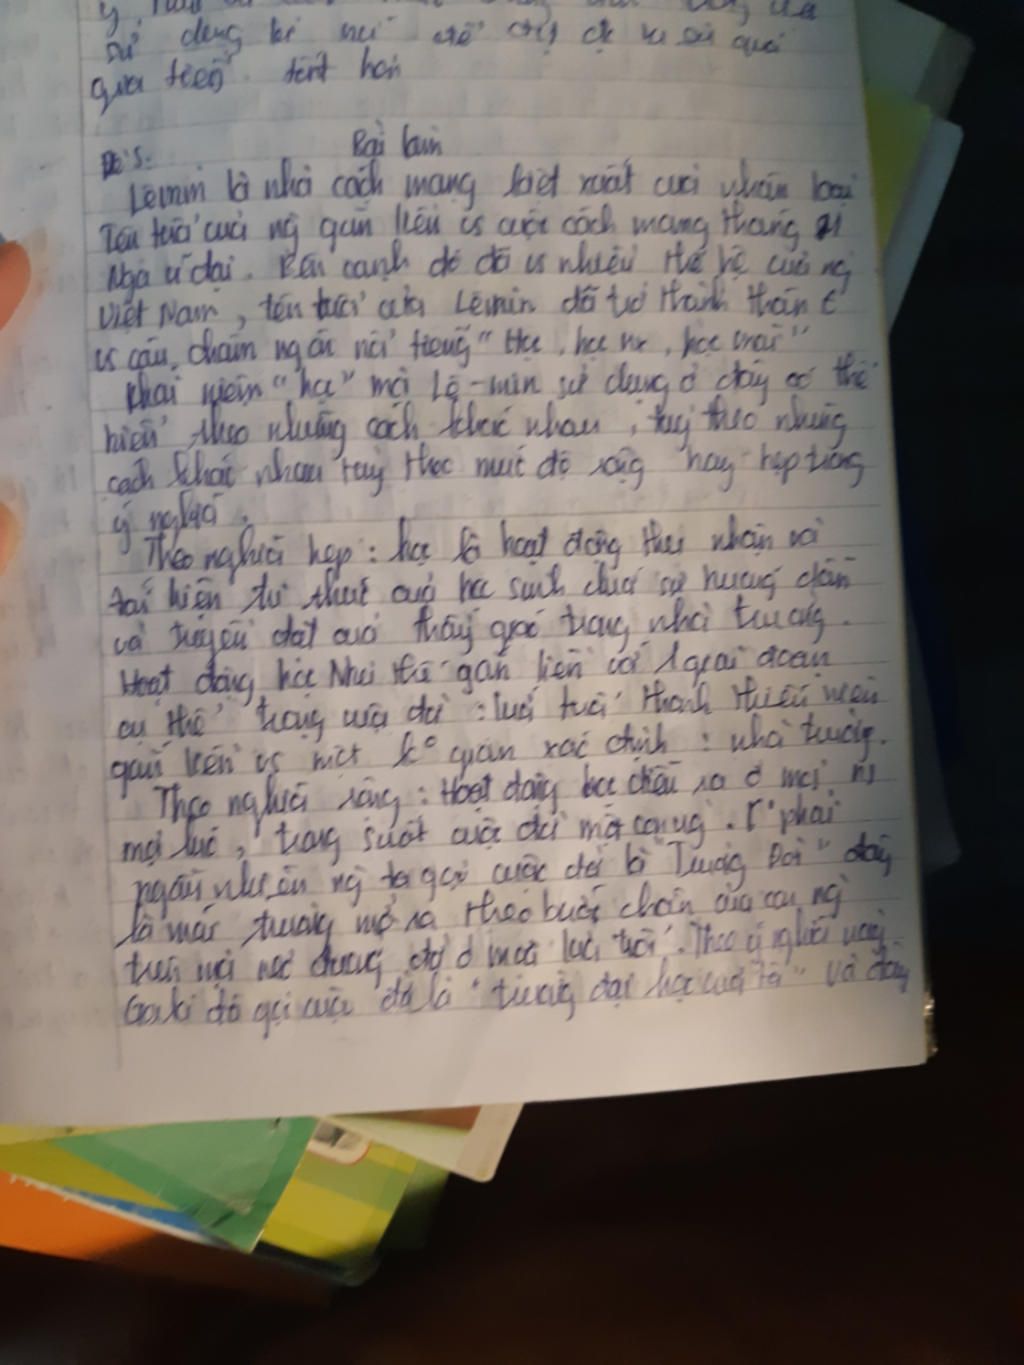 sử dụng
qua tiếng tốt hơn
Đề 5. Bài làm
Lê nin là nhà cách mạng kiệt xuất của nhân loại
Tên tuổi của ng gắn liền vs cuộc cách mạng tháng
Nga vĩ đại. Bên cạnh đó đối vs nhiều thế hệ của ng
Việt Nam, tên tuổi của Lênin đã trở thành thân
vs câu châm ngôn nổi tiếng "Học, học nx, học mãi"
Khái niệm "học" mà Lê-nin sử dụng ở đây có thể
hiểu theo những cách khác nhau, tuỳ theo những
cách khác nhau tuỳ theo mức độ rộng hay hẹp từng
ý nghĩa.
Theo nghĩa hẹp: học là hoạt động thu nhận và
tái hiện tri thức của học sinh dưới sự hướng dẫn
và truyền đạt của thầy giáo trong nhà trường.
Hoạt động học như thế gắn liền với 1 giai đoạn
cụ thể trong cuộc đời: lứa tuổi thanh thiếu niên
gắn liền vs một k° gian xác định: nhà trường.
Theo nghĩa rộng: Hoạt động học diễn ra ở mọi
mọi lúc, trong suốt cuộc đời một con ng. phải
ngẫu nhiên ng ta gọi cuộc đời là "Trường Đời" đây
là trường mở ra theo bước chân của con ng
trên mọi đường đời ở mọi lứa tuổi. Theo ý nghĩa
đã gọi cuộc đời là "trường đại học của tôi" và đây